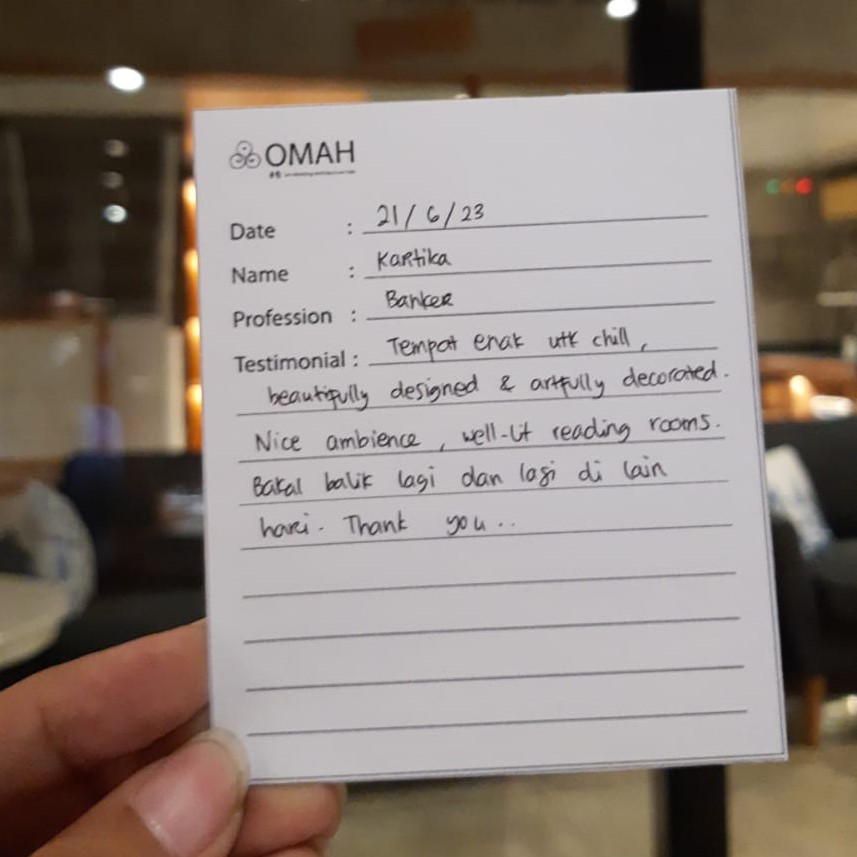 OMAH
Date : 21/6/23
Name : Kartika
Profession : Banker
Testimonial : Tempat enak utk chill,
beautifully designed & artfully decorated.
Nice ambience, well-lit reading rooms.
Bakal balik lagi dan lagi di lain
hari. Thank you..